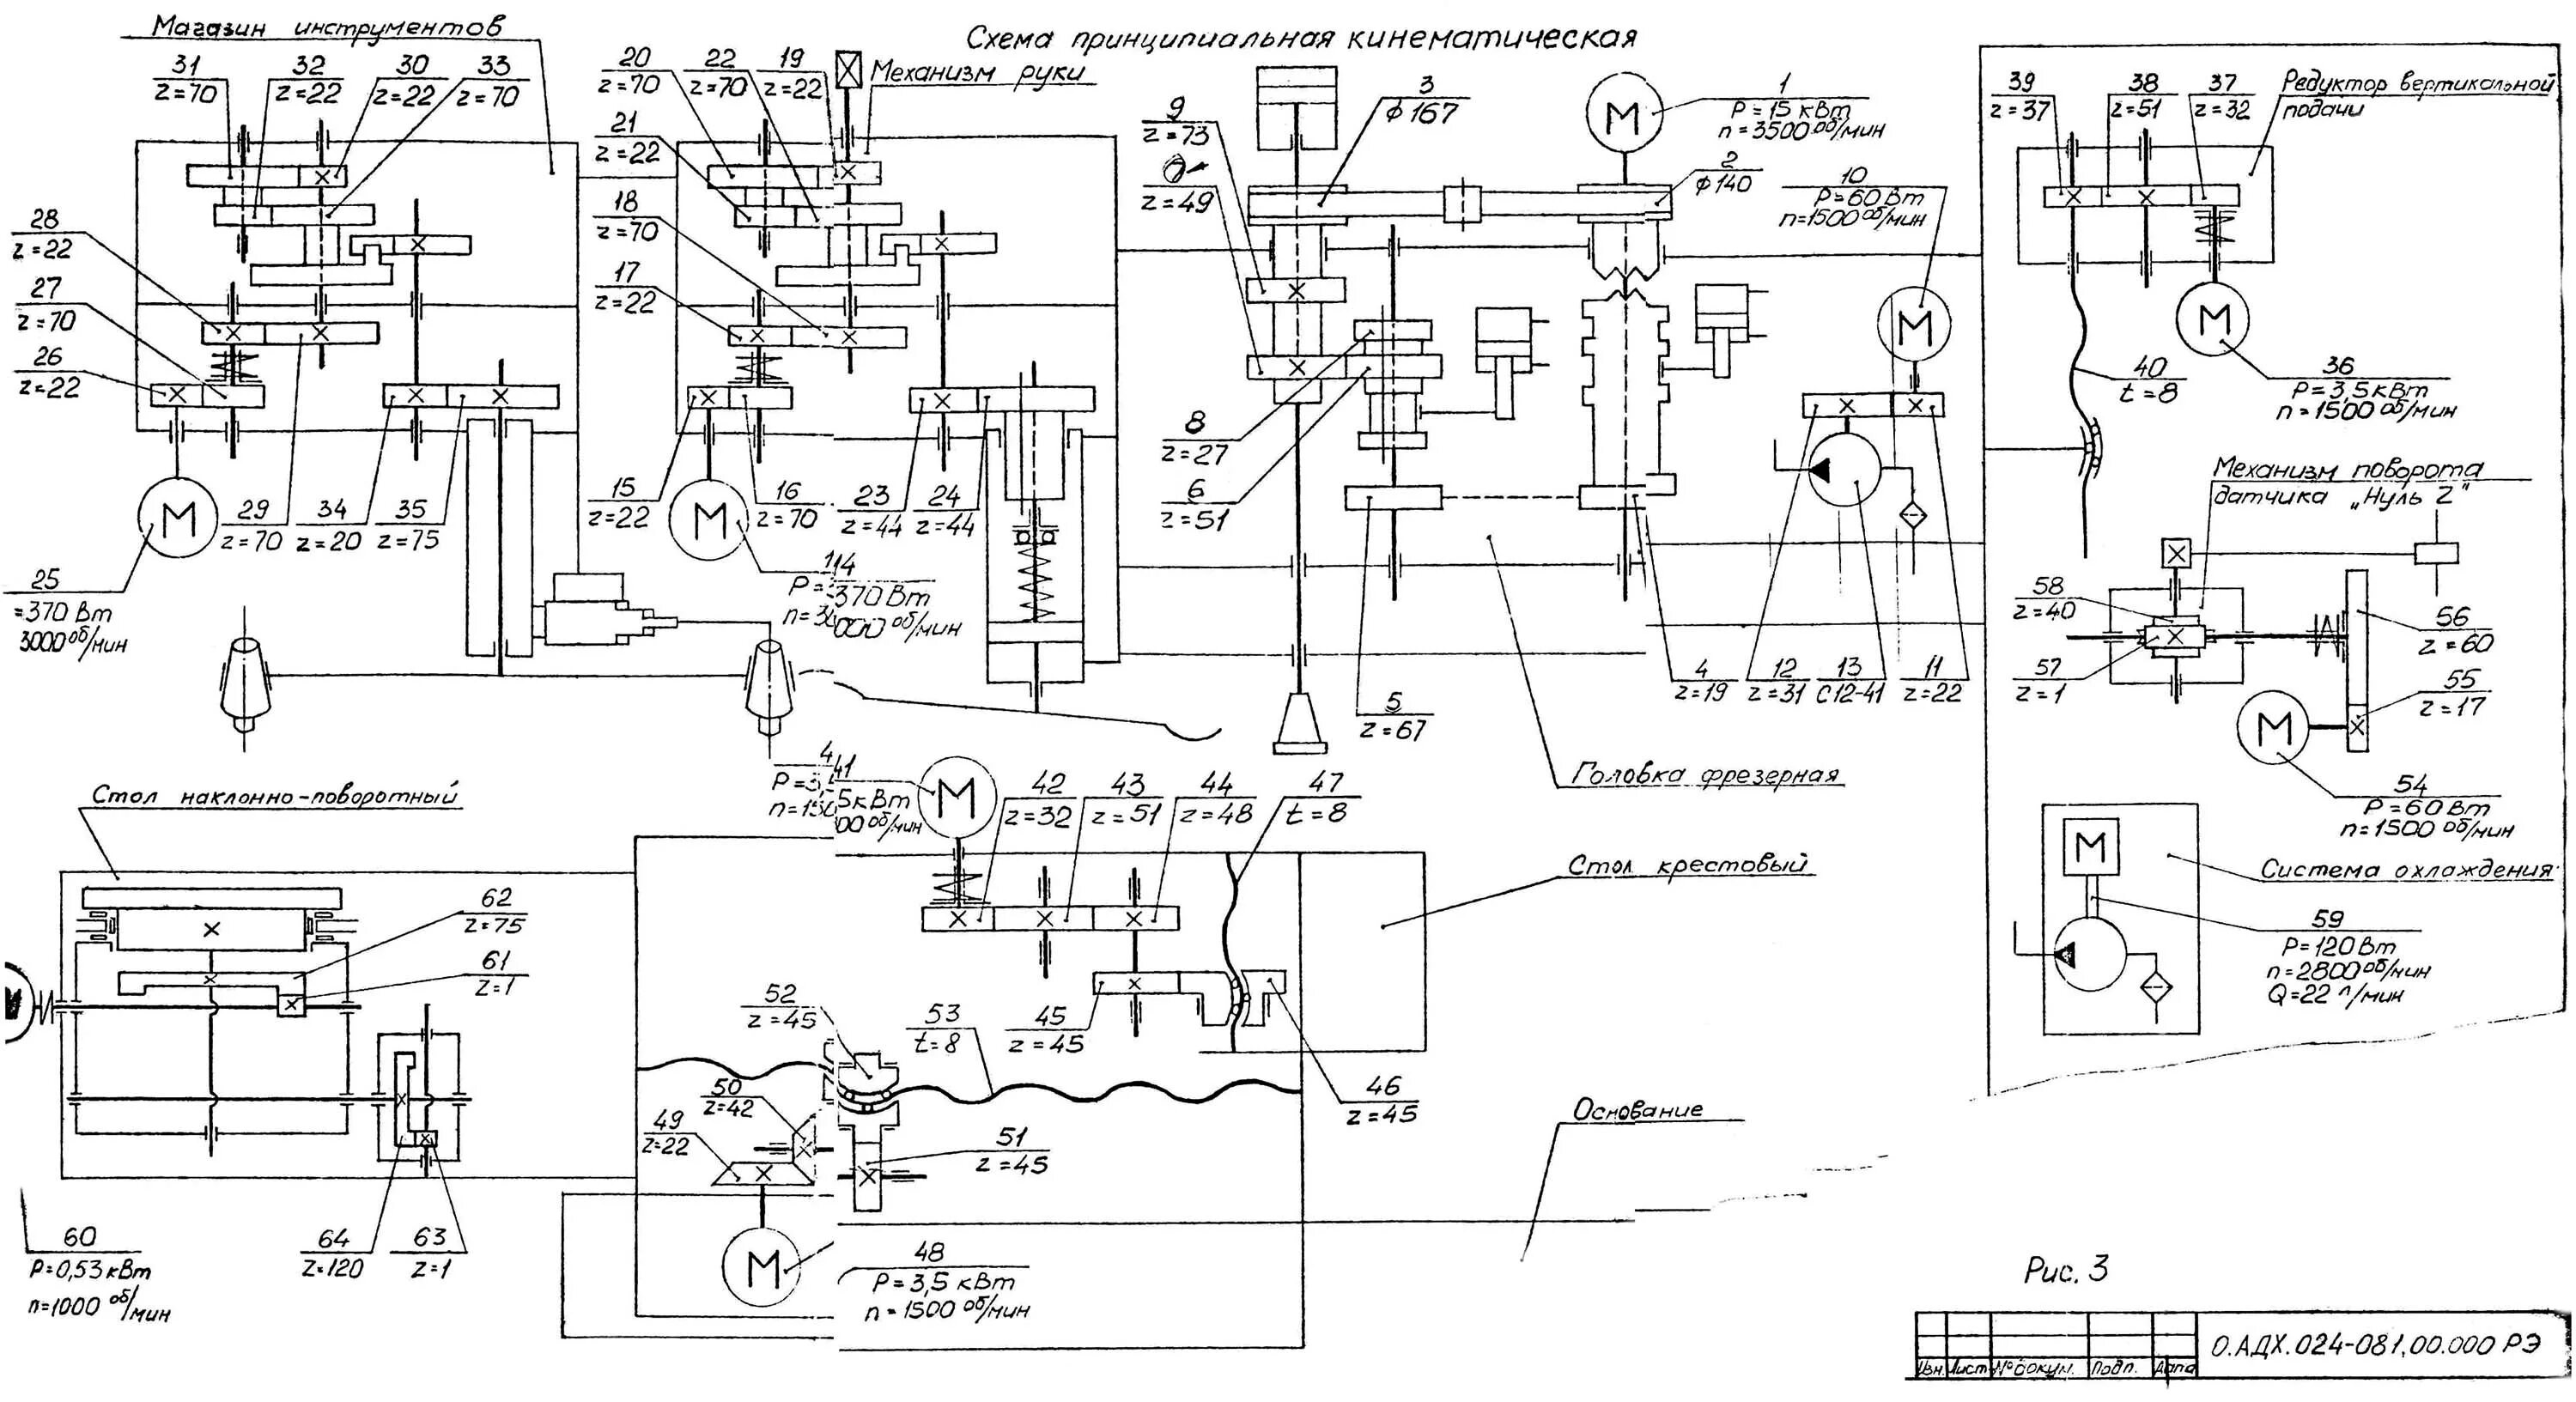 Схема принципиальная кинематическая
Магазин инструментов
31
z=70
32
z=22
30
z=22
33
z=70
28
z=22
27
z=70
26
z=22
29
z=70
34
z=20
35
z=75
М
25
=370 Вт
3000 об/мин
Механизм руки
20
z=70
22
z=70
19
z=22
21
z=22
18
z=70
17
z=22
15
z=22
16
z=70
23
z=44
24
z=44
М
14
370 Вт
000 об/мин
9
z=73
z=49
3
ф167
М
1
P=15 кВт
n=3500 об/мин
2
ф140
10
P=60 Вт
n=1500 об/мин
М
8
z=27
6
z=51
5
z=67
4
z=19
12
z=31
13
С12-41
11
z=22
Головка фрезерная
39
z=37
38
z=51
37
z=32
Редуктор вертикальной
подачи
М
40
t=8
36
P=3,5 кВт
n=1500 об/мин
Механизм поворота
датчика „Нуль Z"
58
z=40
57
z=1
56
z=60
55
z=17
М
54
P=60 Вт
n=1500 об/мин
М
Система охлаждения
59
P=120 Вт
n=2800 об/мин
Q=22 л/мин
Стол наклонно-поворотный
62
z=75
61
z=1
60
P=0,53 кВт
n=1000 об/мин
64
z=120
63
z=1
41
5 кВт
00 об/мин
М
42
z=32
43
z=51
44
z=48
47
t=8
Стол крестовый
52
z=45
53
t=8
45
z=45
46
z=45
50
z=42
49
z=22
51
z=45
М
48
P=3,5 кВт
n=1500 об/мин
Основание
Рис. 3
Изм. Лист № докум. Подп. Дата
О.АДХ.024-081.00.000 РЭ